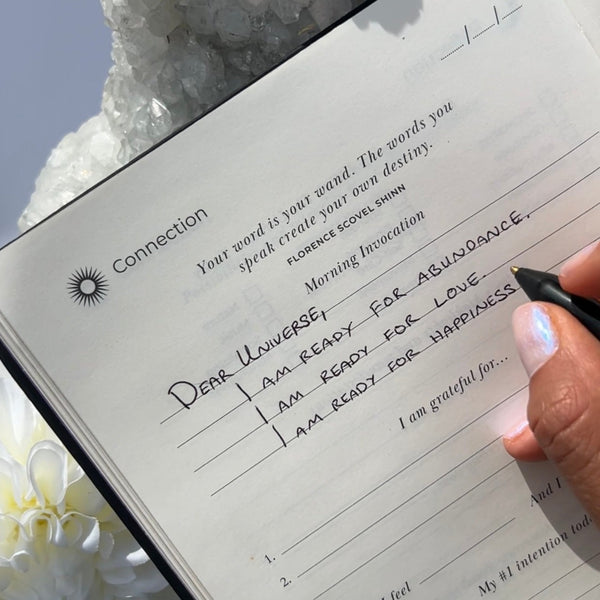 Connection
Your word is your wand. The words you
speak create your own destiny.
FLORENCE SCOVEL SHINN
Morning Invocation
DEAR UNIVERSE,
I AM READY FOR ABUNDANCE.
I AM READY FOR LOVE.
I AM READY FOR HAPPINESS
I am grateful for...
1.
2.
And I
feel
My #1 intention tod